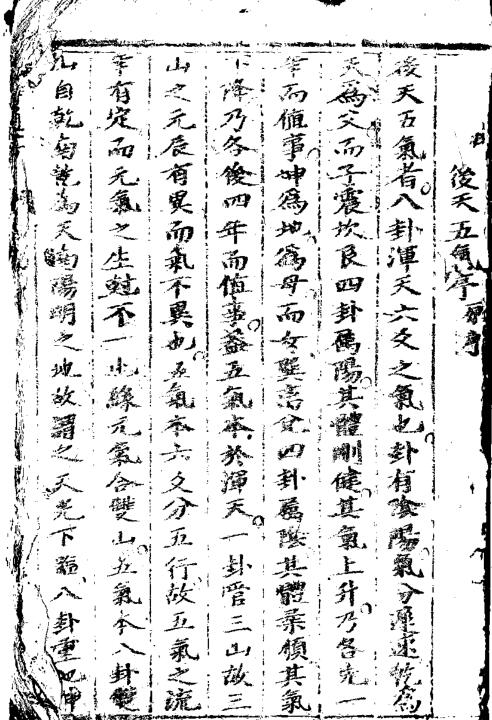 後天五氣序
後天五氣者八卦渾天六爻之氣也卦有陰陽氣分遲速乾為
天為父而子震坎艮四卦屬陽其體剛健其氣上升乃各先一
年而值事坤為地為母而女巽離兌四卦屬陰其體柔順其氣
下降乃各後四年而值事蓋五氣本於渾天一卦管三山故三
山之元辰有異而氣不異也五氣本六爻分五行故五氣之流
年有定而元氣之生尅不一也緣元氣合雙山五氣本八卦雙
山自乾爲天陽明之地故謂之天光下臨八卦重坤